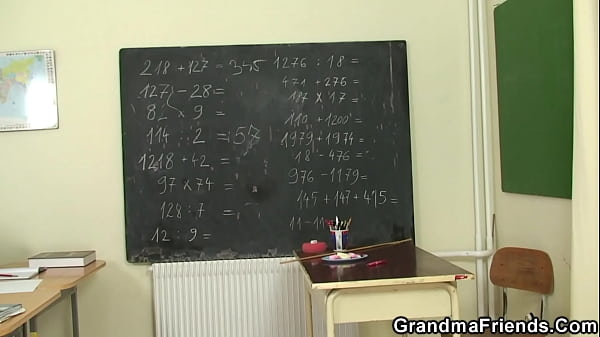 218 + 127 = 345
127 - 28 =
82 × 9 =
114 : 2 = 57
1218 + 42 =
97 × 74 =
128 : 7 =
12 : 9 =
1276 : 18 =
471 + 276 =
187 × 17 =
110 + 1200 =
1979 + 1974 =
18 - 476 =
976 - 1179 =
145 + 147 + 415 =
GrandmaFriends.Com